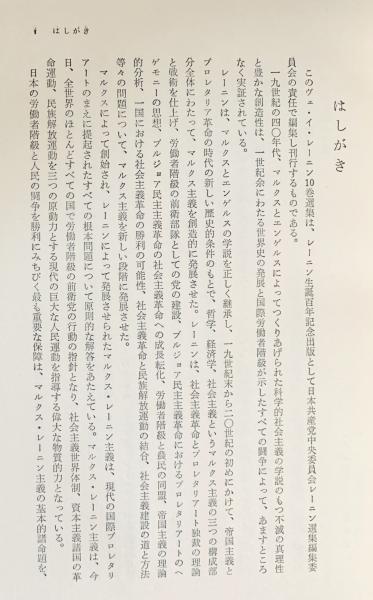 i　はしがき
はしがき
このヴェ・イ・レーニン10巻選集は、レーニン生誕百年記念出版として日本共産党中央委員会レーニン選集編集委
員会の責任で編集し刊行するものである。
一九世紀の四〇年代、マルクスとエンゲルスによってつくりあげられた科学的社会主義の学説のもつ不滅の真理性
と豊かな創造性は、一世紀余にわたる世界史の発展と国際労働者階級が示したすべての闘争によって、あますところ
なく実証されている。
レーニンは、マルクスとエンゲルスの学説を正しく継承し、一九世紀末から二〇世紀の初めにかけて、帝国主義と
プロレタリア革命の時代の新しい歴史的条件のもとで、哲学、経済学、社会主義というマルクス主義の三つの構成部
分全体にわたって、マルクス主義を創造的に発展させた。レーニンは、社会主義革命とプロレタリアート独裁の理論
と戦術を仕上げ、労働者階級の前衛部隊としての党の建設、ブルジョア民主主義革命におけるプロレタリアートのヘ
ゲモニーの思想、ブルジョア民主主義革命の社会主義革命への成長転化、労働者階級と農民の同盟、帝国主義の理論
的分析、一国における社会主義革命の勝利の可能性、社会主義革命と民族解放運動の結合、社会主義建設の道と方法
等々の問題について、マルクス主義を新しい段階に発展させた。
マルクスによって創始され、レーニンによって発展させられたマルクス・レーニン主義は、現代の国際プロレタリ
アートのまえに提起されたすべての根本問題について原則的な解答をあたえている。マルクス・レーニン主義は、今
日、全世界のほとんどすべての国で労働者階級の前衛党の行動の指針となり、社会主義世界体制、資本主義諸国の革
命運動、民族解放運動を三つの原動力とする現代の巨大な人民運動を指導する偉大な物質的力となっている。
日本の労働者階級と人民の闘争を勝利にみちびく最も重要な保障は、マルクス・レーニン主義の基本的諸命題を、